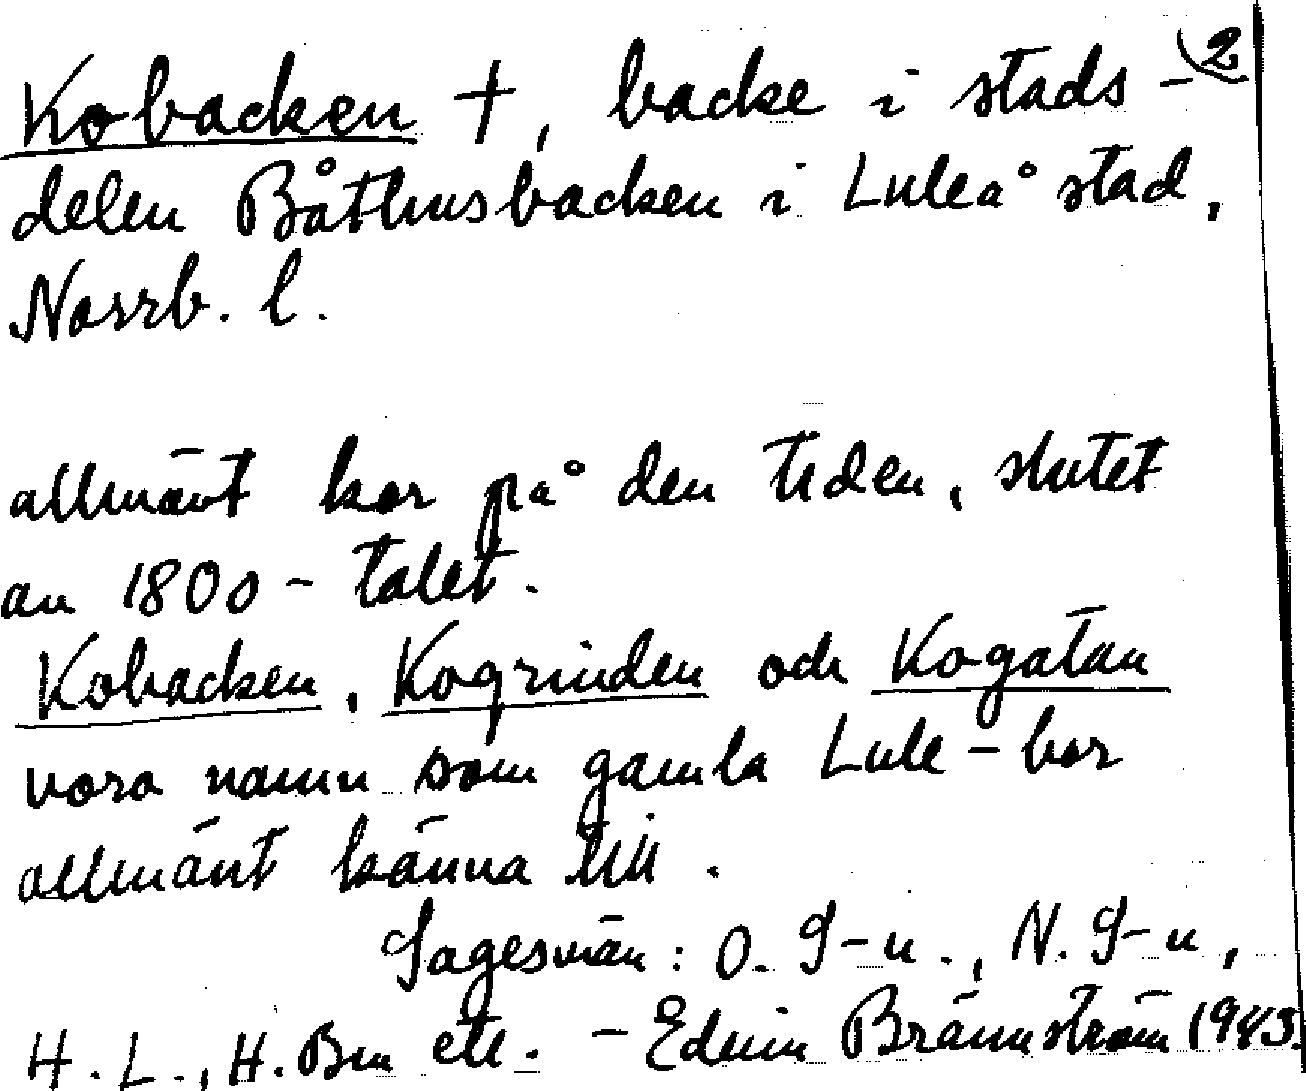 Kobacken †, backe i stads- 2
delen Båthusbacken i Luleå stad,
Norrb. l.
allmänt kor på den tiden, slutet
av 1800-talet.
Kobacken, Kogrinden och Kogatan
voro namn som gamla Lule-bor
allmänt känna till.
Sagesmän: O. S-n., N. S-n,
H. L., H. Bm etc. - Edvin Brännström 1943.